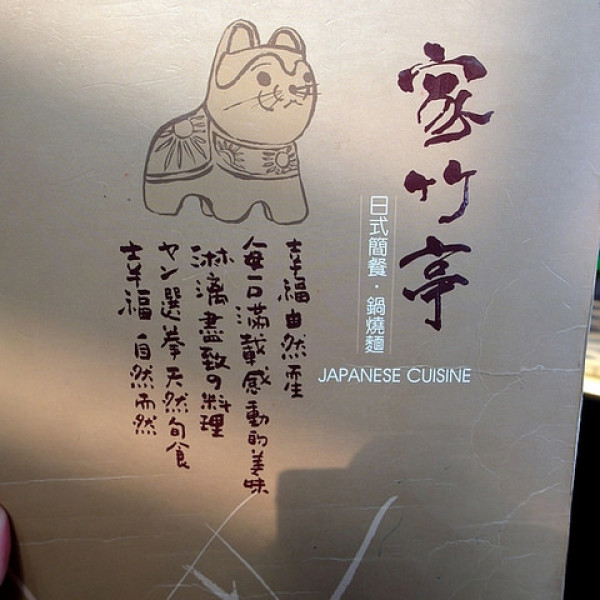 家竹亭
日式簡餐・鍋燒麵
JAPANESE CUISINE
幸福由然產
每口滿載感動的美味
淋漓盡致の料理
ヤン選拳天然旬食
幸福 自然而然